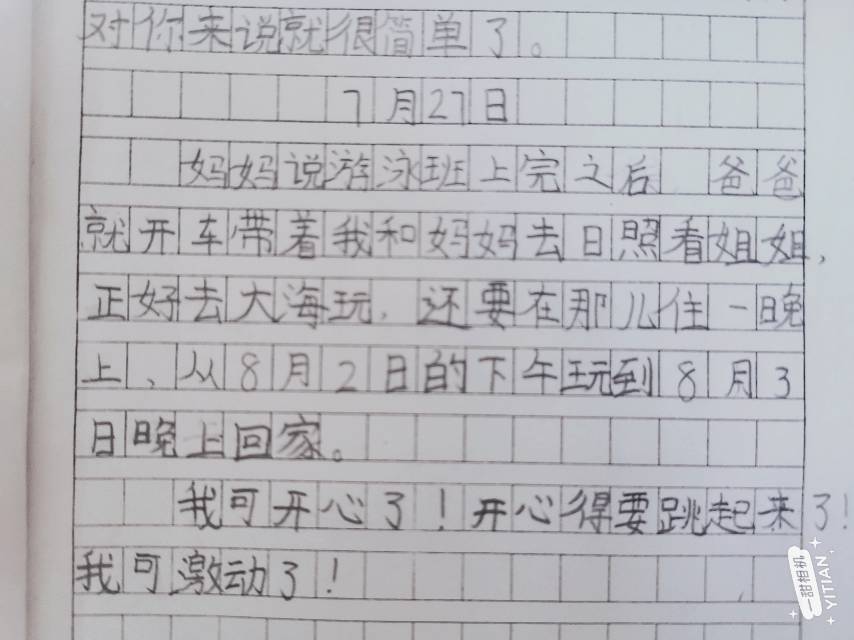 对你来说就很简单了。
7月27日
妈妈说游泳班上完之后 爸爸
就开车带着我和妈妈去日照看姐姐，
正好去大海玩，还要在那儿住一晚
上，从8月2日的下午玩到8月3
日晚上回家。
我可开心了！开心得要跳起来了！
我可激动了！
一甜相机
YITIAN